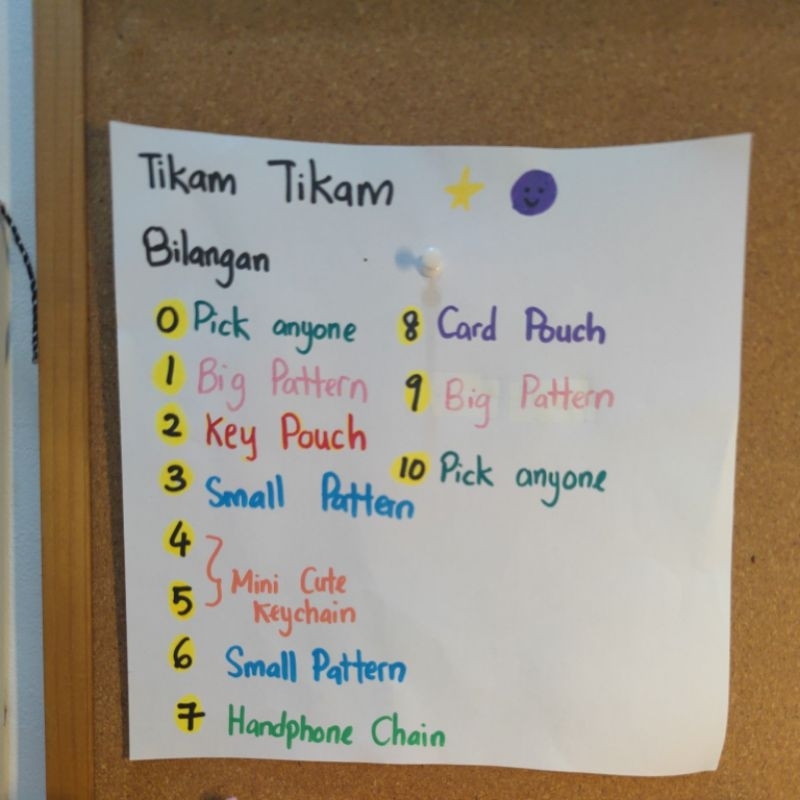 Tikam Tikam
Bilangan
0 Pick anyone
1 Big Pattern
2 Key Pouch
3 Small Pattern
4
5
Mini Cute
Keychain
6 Small Pattern
7 Handphone Chain
8 Card Pouch
9 Big Pattern
10 Pick anyone